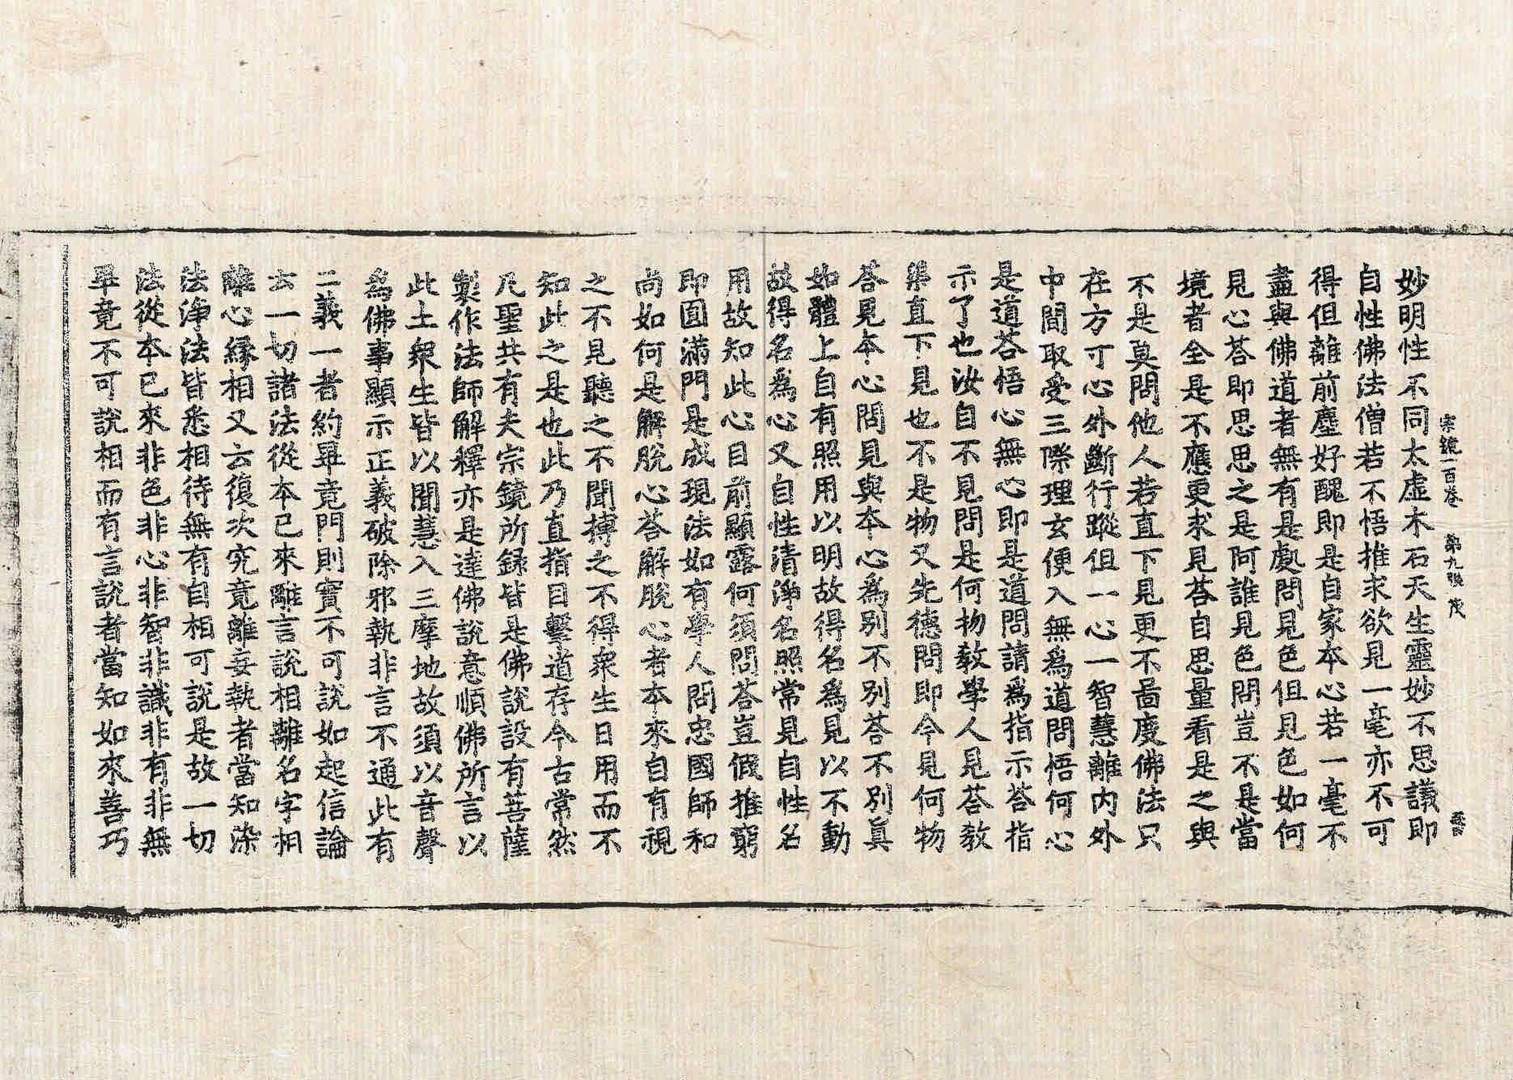 宗鏡一百卷 第九張 茂
妙明性不同太虛木石天生靈妙不思議即
自性佛法僧若不悟推求欲見一毫亦不可
得但離前塵好醜即是自家本心若一毫不
盡與佛道者無有是處問見色但見色如何
見心荅即思思之是阿誰見色問豈不是當
境者全是不應更求見荅自思量看是之與
不是莫問他人若直下見更不啚度佛法只
在方寸心外斷行蹤但一心一智慧離內外
中間取受三際理玄便入無為道問悟何心
是道荅悟心無心即是道問請為指示荅指
示了也汝自不見問是何物教學人見荅教
渠直下見也不是物又先德問即今見何物
荅見本心問見與本心為別不別荅不別真
如體上自有照用以明故得名為見以不動
故得名為心又自性清淨名照常見自性名
用故知此心目前顯露何須問荅豈假推窮
即圓滿門是成現法如有學人問忠國師和
尚如何是解脫心荅解脫心者本來自有視
之不見聽之不聞搏之不得衆生日用而不
知此之是也此乃直指目擊道存今古常然
凡聖共有夫宗鏡所録皆是佛說設有菩薩
製作法師解釋亦是達佛說意順佛所言以
此土衆生皆以聞慧入三摩地故須以音聲
為佛事顯示正義破除邪執非言不通此有
二義一者約畢竟門則實不可說如起信論
云一切諸法從本已來離言說相離名字相
離心緣相又云復次究竟離妄執者當知染
法淨法皆悉相待無有自相可說是故一切
法從本已來非色非心非智非識非有非無
畢竟不可說相而有言說者當知如來善巧